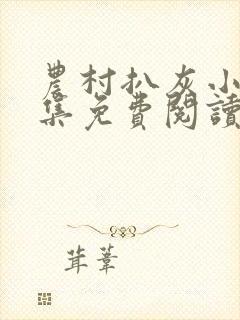 農村扒灰小
集免費閱讀
茸葦